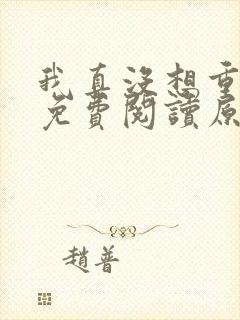 我真沒想重
免費閱讀原
趙普